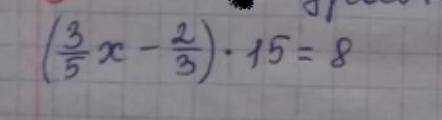 (3/5 x - 2/3) · 15 = 8